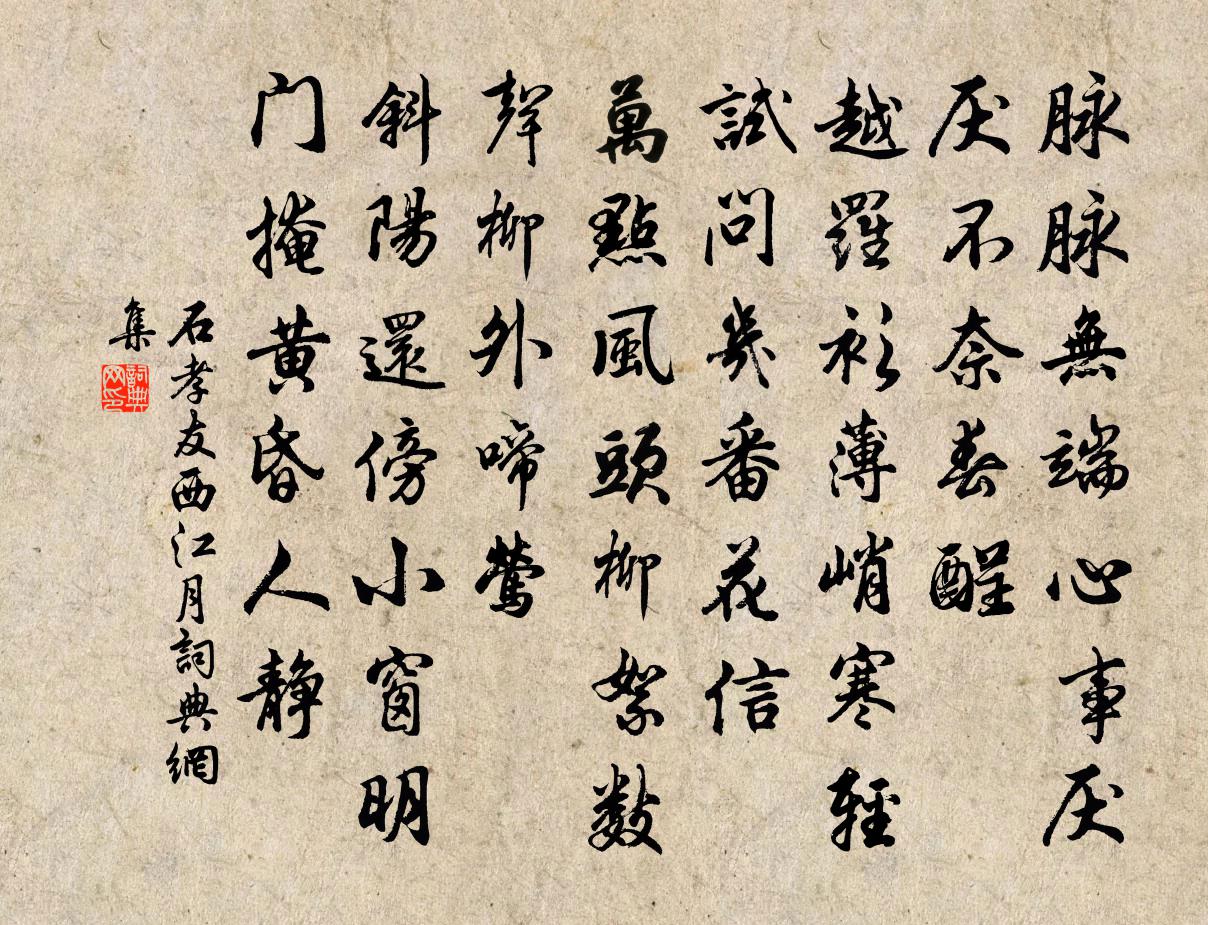 脉脉無端心事厌
厌不奈春酲
越羅衫薄峭寒輕
試問幾番花信
萬點風頭柳絮數
聲柳外啼鶯
斜陽還傍小窗明
门掩黄昏人静
石孝友西江月詞典網
集
詞典
网印